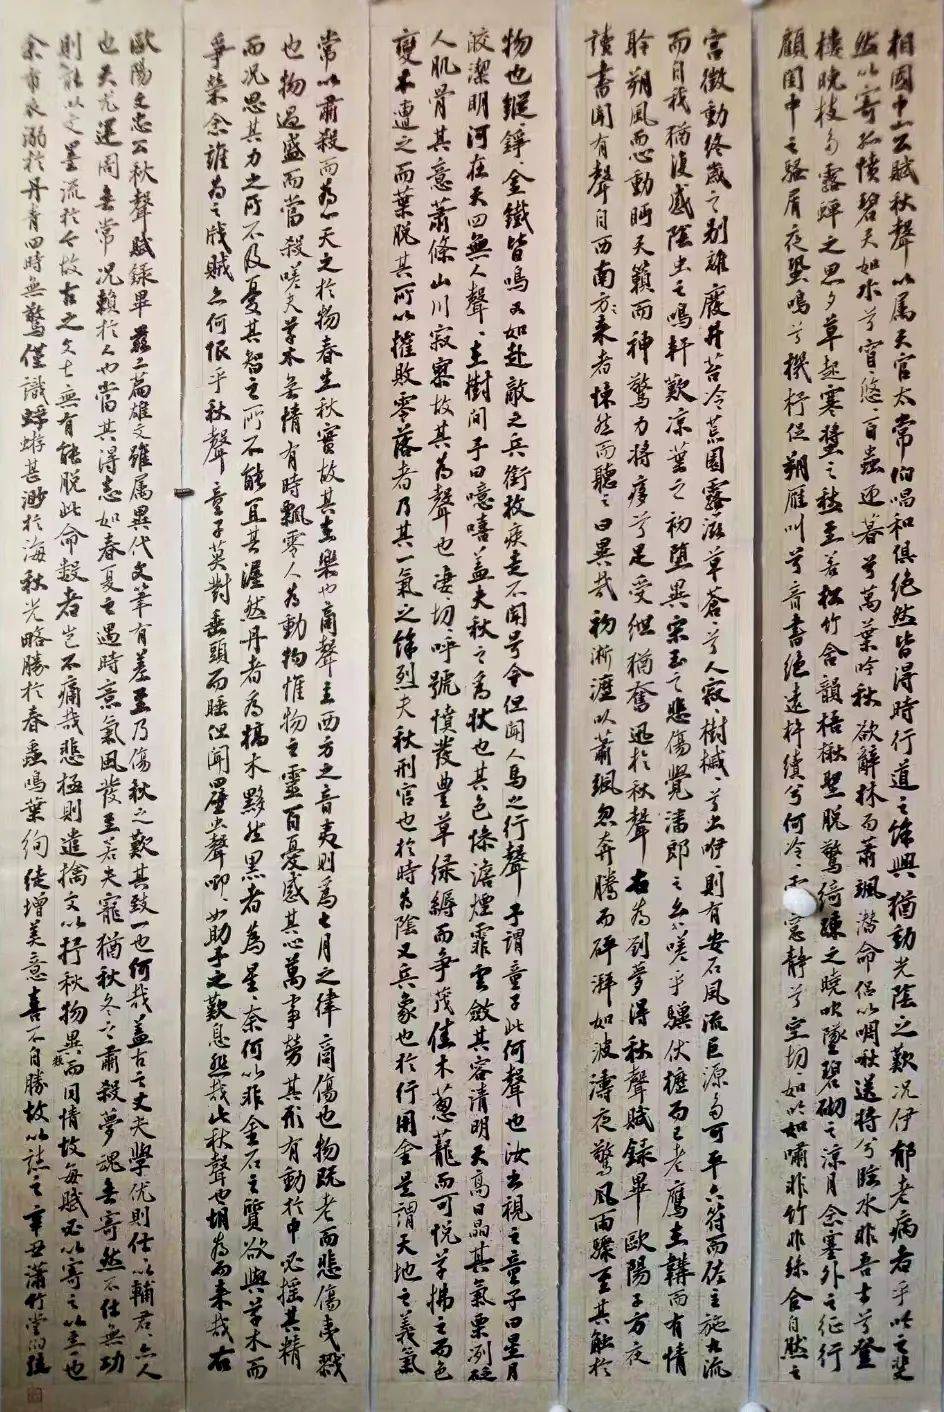 相國中山公賦秋聲以属天官太常伯唱和俱绝然皆得時行道之餘興猶動光陰之歎况伊郁老病者乎吟之斐
然以寄孤憤碧天如水兮窅悠百蟲迎暮兮萬葉吟秋欲辭林而蕭颯潜命侣以啁啾送將兮臨水非吾土兮登
樓晚枝多露蟬之思夕草起寒螿之愁至若松竹含韻梧楸墅脱驚綺疎之曉吹墜碧砌之涼月念塞外之征行
顧閨中之騷屑夜蛩鳴兮機杼促朔雁叫兮音書绝遠杵續兮何冷窓静兮空切如吟如嘯非竹非絲合自然之
宫徵動終歲之别離廢井苔冷荒園露滋草蒼兮人寂樹槭兮虫咿則有安石風流巨源多可平六符而佐主施九流
而自我猶復感陰虫之鳴軒歎凉葉之初墮異宋玉之悲傷覺潘郎之幺嗟乎驥伏櫪而已老鷹在韝而有情
聆朔風而心動眄天籟而神驚力將痑兮足受紲猶奮迅於秋聲右為劉夢得秋聲賦録畢歐陽子方夜
讀書聞有聲自西南方来者悚然而聽之曰異哉初淅瀝以蕭颯忽奔騰而砰湃如波濤夜驚風雨驟至其觸於
物也鏦錚金鐵皆鳴又如赴敵之兵銜枚疾走不聞号令但聞人馬之行聲予謂童子此何聲也汝出視之童子曰星月
皎潔明河在天四無人聲在樹間予曰噫嘻蓋夫秋之為狀也其色慘澹煙霏雲斂其容清明天高日晶其氣栗冽砭
人肌骨其意蕭條山川寂寥故其為聲也凄切呼號憤發豊草緑縟而争茂佳木葱蘢而可悦草拂之而色
變木遭之而葉脱其所以摧敗零落者乃其一氣之餘烈夫秋刑官也於時為陰又兵象也於行用金是謂天地之義氣
常以肅殺而為心天之於物春生秋實故其在樂也商聲主西方之音夷則為七月之律商傷也物既老而悲傷夷戮
也物過盛而當殺嗟夫草木無情有時飄零人為動物惟物之靈百憂感其心萬事勞其形有動於中必摇其精
而况思其力之所不及憂其智之所不能宜其渥然丹者為槁木黟然黑者為星奈何以非金石之質欲與草木而
爭榮念誰為之戕賊亦何恨乎秋聲童子莫對垂頭而睡但聞四壁虫聲唧如助予之歎息然哉此秋聲也胡為而来哉右
歐陽文忠公秋聲賦録畢兹二篇雄文雖属異代文筆有差至乃傷秋之歎其致一也何哉蓋古之丈夫學優則仕以輔君亦人
也天元運周無常况賴於人也當其得志如春夏之遇時意氣風發至若失寵猶秋冬之肅殺夢魂無寄然不仕無功
則能以文墨流於今故古之文士無有能脱此命數者豈不痛哉悲極則遣摛文以抒秋物異而同情故每賦必以寄之以志也
余布衣溺於丹青四時無驚僅識蜉蝣甚渺於海秋光略勝於春蟲鳴葉絢徒增美意喜不自勝故以誌之辛丑瀟竹堂